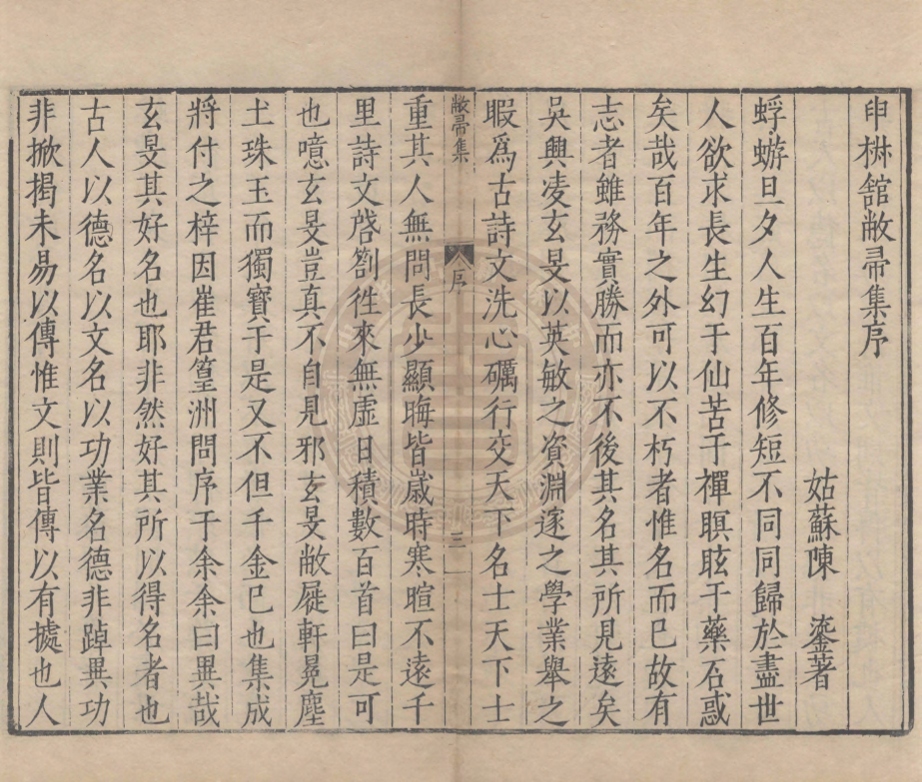 申椒館敝帚集序
姑蘇陳鎏著
蜉蝣旦夕人生百年修短不同同歸於盡世
人欲求長生幻于仙苦于禪瞑眩于藥石惑
矣哉百年之外可以不朽者惟名而已故有
志者雖務實勝而亦不後其名其所見遠矣
吳興凌玄旻以英敏之資淵邃之學業舉之
暇爲古詩文洗心礪行交天下名士天下士
敝帚集 序 三
重其人無問長少顯晦皆歲時寒暄不遠千
里詩文啓劄徃來無虛日積數百首曰是可
也噫玄旻豈真不自見邪玄旻敝屣軒冕塵
土珠玉而獨寶于是又不但千金已也集成
將付之梓因崔君篁洲問序于余余曰異哉
玄旻其好名也耶非然好其所以得名者也
古人以德名以文名以功業名德非踔異功
非掀揭未易以傳惟文則皆傳以有據也人